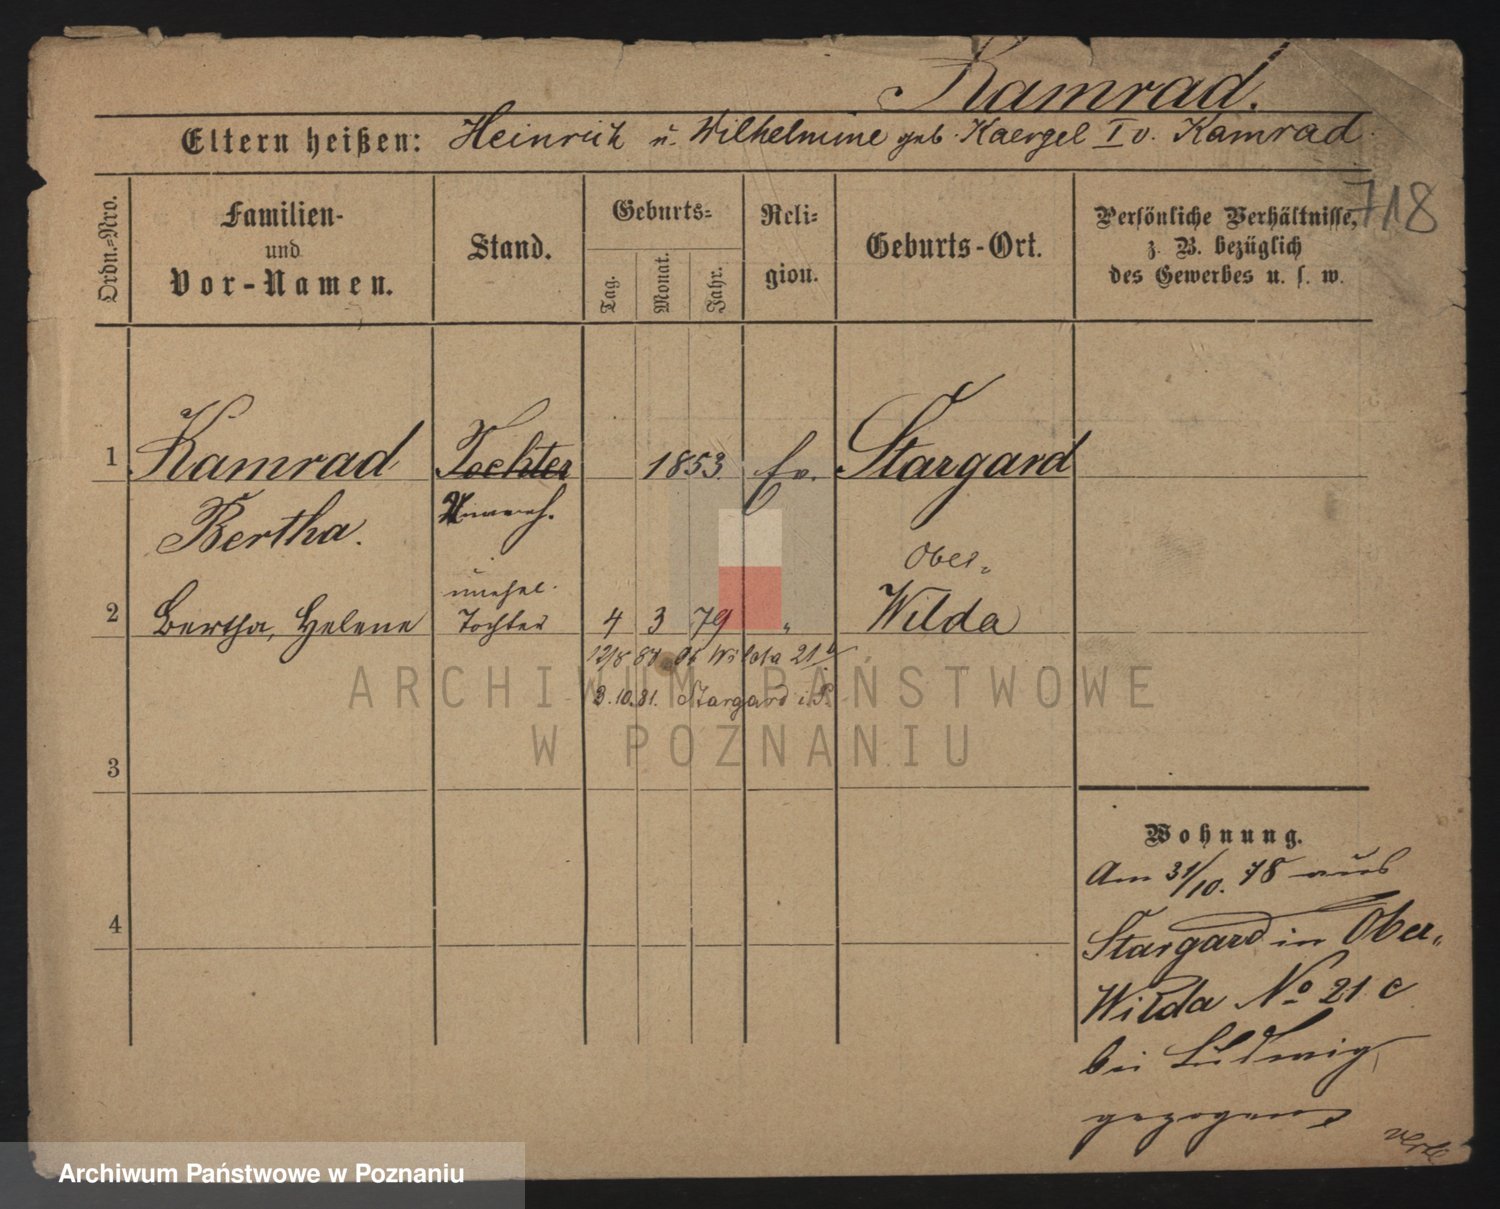 Kamrad.
Eltern heißen: Heinrich u. Wilhelmine geb. Kaergel I v. Kamrad.
718
Ordn.=Nro.
Familien-
und
Vor-Namen.
Stand.
Geburts=
Tag.
Monat.
Jahr.
Reli=
gion.
Geburts-Ort.
Persönliche Verhältnisse,
z. B. bezüglich
des Gewerbes u. s. w.
1 Kamrad Tochter 1853. Ev. Stargard
Bertha. Unverh.
unehel. Ober=
2 Bertha, Helene Tochter 4 3 79 " Wilda
Wilda 21
3.10.81. Stargard i. P.
3
4
Wohnung.
Am 31/10. 78 aus
Stargard in Ober=
Wilda No 21 c
bei Ludwig
gezogen
ARCHIWUM PAŃSTWOWE
W POZNANIU
Archiwum Państwowe w Poznaniu